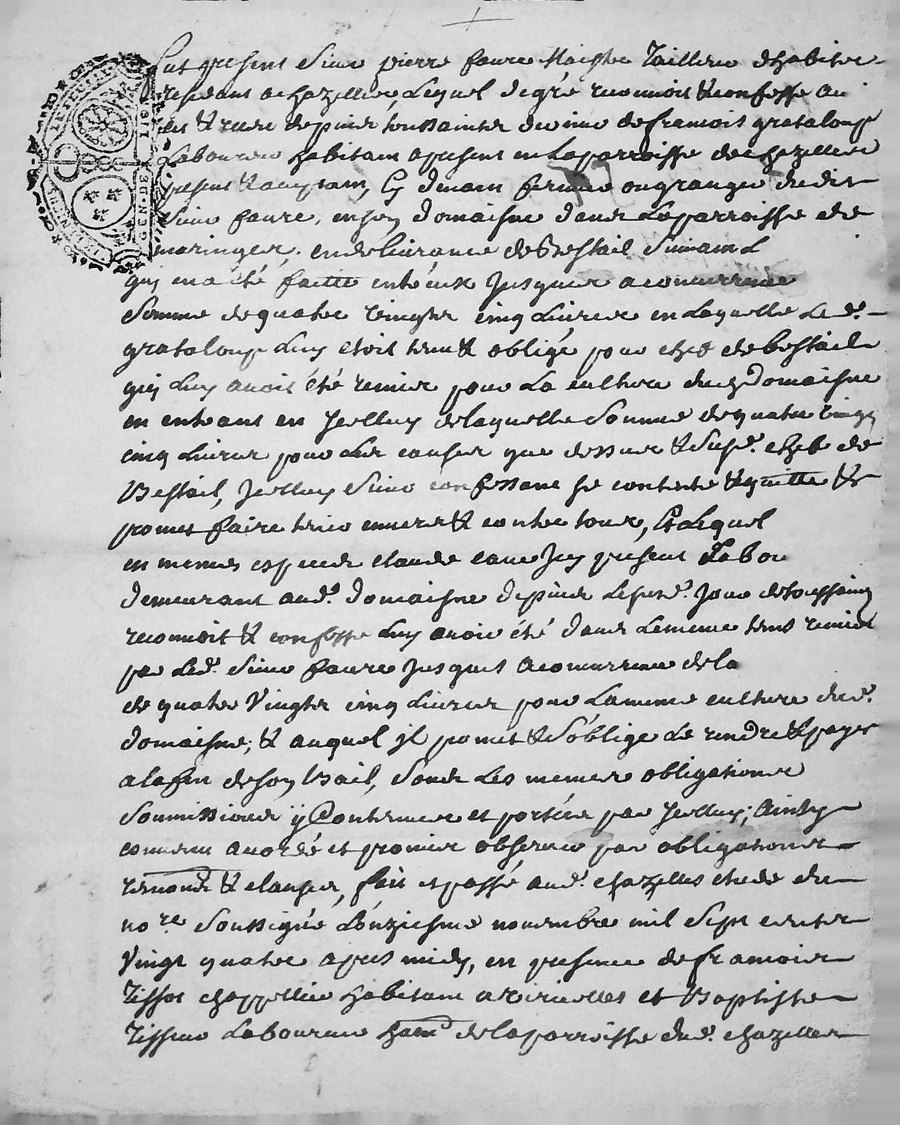 Fut present Sieur pierre faure Maistre Tailleur dhabits
residant a chazelles Lequel de gré reconnoit & confesse avoir
eus & receu depuis toussaints dernier de francois grataloup
Laboureur habitant apresent en Laparroisse de chazelles
present & acceptant, Cy devant fermier ou granger dudit
Sieur faure, en son domaisne dans Laparroisse de
maringes, en delivrance de Bestail Suivant L
qui en a été faitte entréeux Jusques a concurrence
Somme de quatre vingts cinq Livres en Laquelle Led.
grataloup Luy étoit tenu & obligé pour chef de bestail
qui Luy avoit été remis pour La culture dud. Domaisne
en entrant en Jcelluy de laquelle Somme de quatre vingt
cinq Livres pour Les causes que dessus & Susd. chef de
Bestail, Jcelluy Sieur confessant se contente & quitte &
promet faire tenir envers & contre tous, Et Lequel
en mesmes especes claude cave Jcy present Labou
demeurant aud. domaisne depuis Lesusd. Jour de toussaint
reconnoit & confesse Luy avoir été dans Lememe tems remis
par Led. Sieur faure Jusques a concurrence de la
de quatre Vingts cinq Livres pour Lameme culture dud.
domaisne, & auquel jl promet & S'oblige Le rendre & payer
a lafin de son Bail, Sous Les memes obligations
Soumissions y Contenues et portées par Jcelluy; Ainsy
convenu accordé et promis observer par obligations
renond. & clauses, fait et passé aud. chazelles etude du
no.re Soussigné Lonziesme novembre mil Sept cents
Vingt quatre apres midy, en presence de francois
Tissot chappellier habitant a viricelles et Baptiste
Tisseur Laboureur habt. de laparroisse dud. chazelles